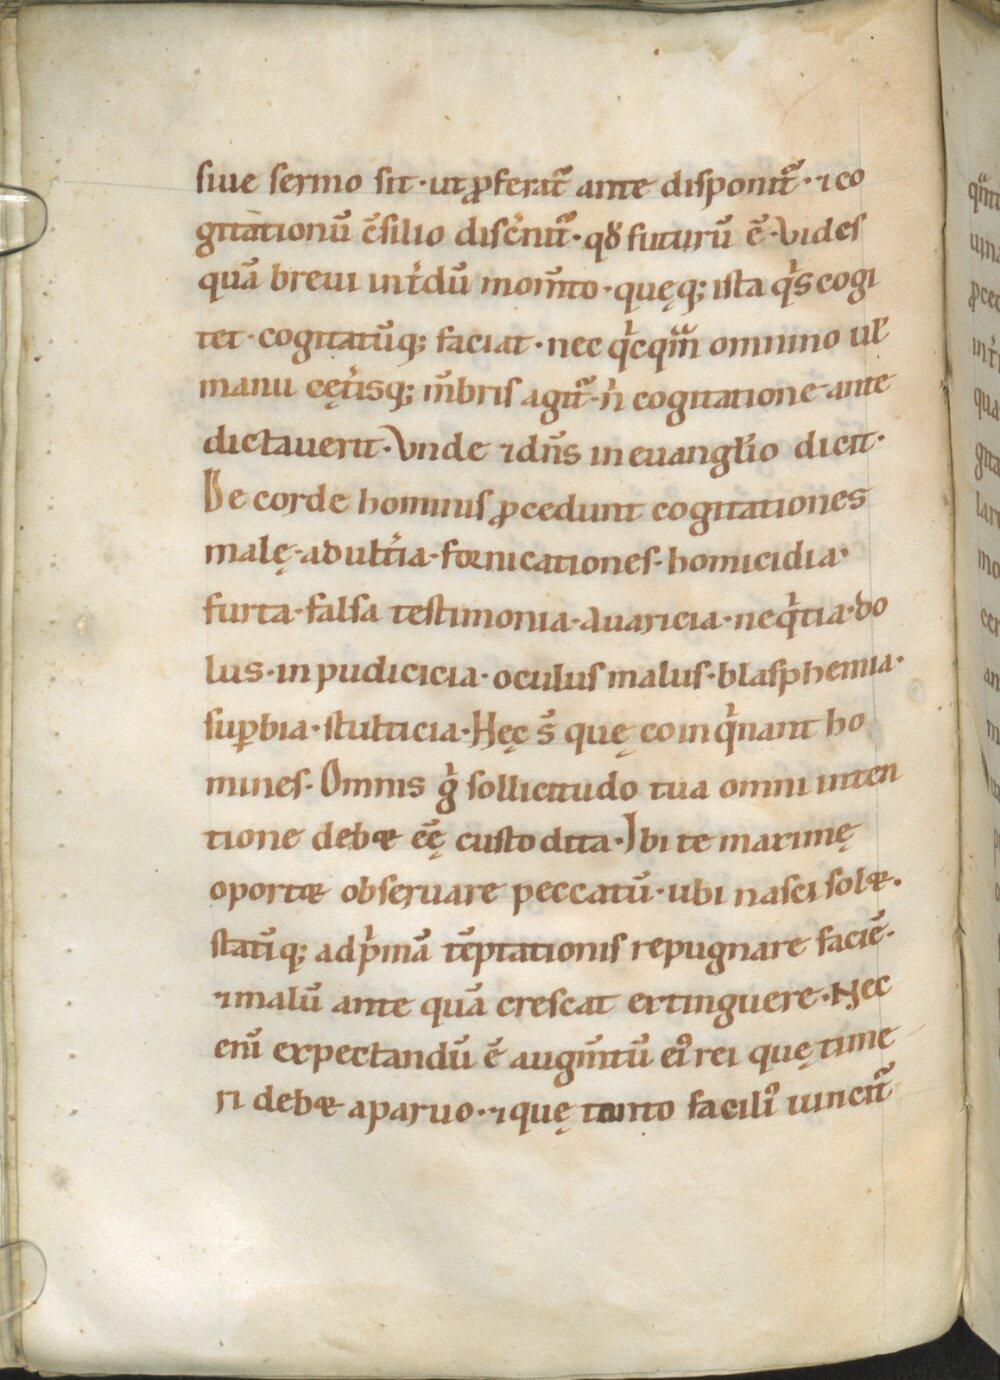 siue sermo sit · ut ꝓferat᷑ ante disponit᷑ · ⁊ co
gitationū c̄silio disc̄nit᷑ · qđ futurū ē · Vides
quā breui int̓dū mom̄to · quęq; ista q̓s cogi
tet · cogitatūq; faciat · nec q̓cqͣm omnino ul̓
manu cęt̓isq; m̄bris agit᷑ · n̓ cogitatione ante
dictauerit · Vnde ⁊ dn̄s in euangl̓io dicit ·
De corde hominis ꝓcedunt cogitationes
malę · adult̓ia · fornicationes · homicidia ·
furta · falsa testimonia · auaricia · neq̓tia · do
lus · inpudicicia · oculus malus · blasphemia ·
suꝑbia · stulticia · Hęc s̄ quę coinq̓nant ho
mines · Omnis g̓ sollicitudo tua omni inten
tione debæ eę̄ custodita · Ibi te maximę
oportæ obseruare peccatū · ubi nasci solæ ·
statīq; ad p̓mā tēptationis repugnare faciē ·
⁊ malū ante quā crescat extinguere · Nec
enī expectandū ē augm̄tū ei᷒ rei quę time
ri debæ a paruo · ⁊ quę tanto facili᷒ uincit᷑